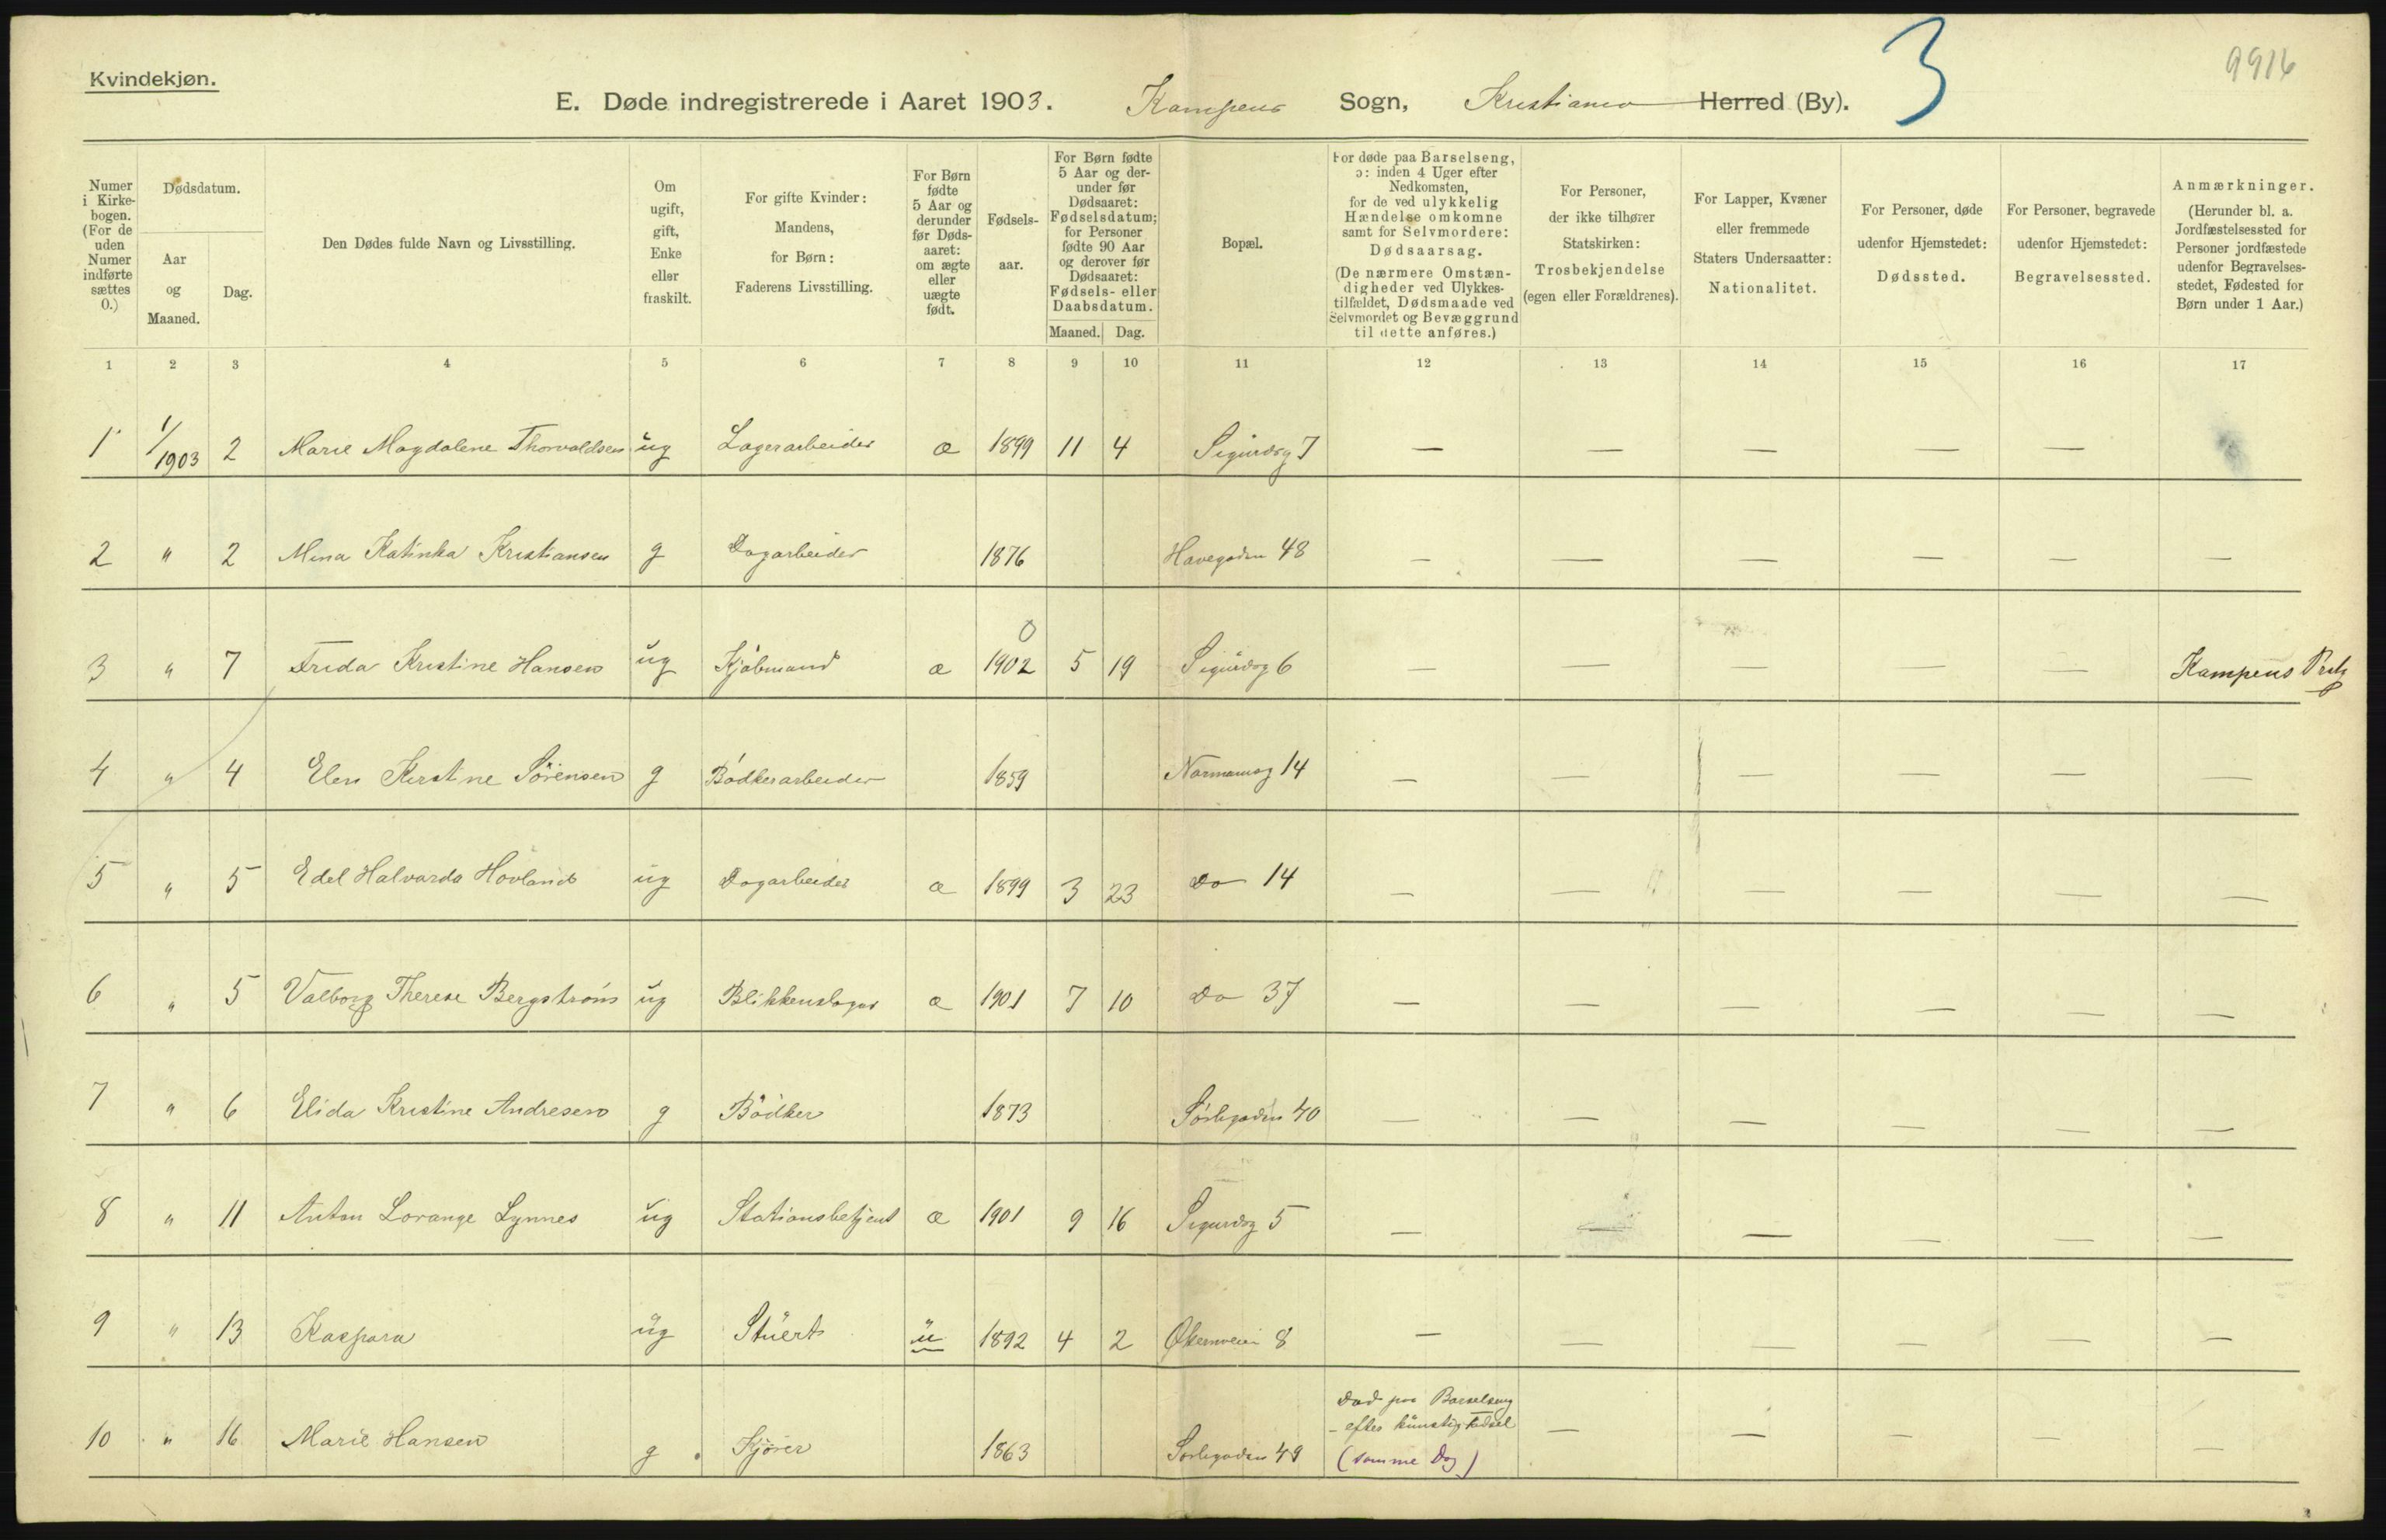 Kvindekjøn.
3
9916
E. Døde indregistrerede i Aaret 1903. Kampens Sogn, Kristiania Herred (By).
Numer i Kirkebogen. (For de uden Numer indførte sættes 0.)
Dødsdatum.
Aar og Maaned.
Dag.
Den Dødes fulde Navn og Livsstilling.
Om ugift, gift, Enke eller fraskilt.
For gifte Kvinder: Mandens, for Børn: Faderens Livsstilling.
For Børn fødte 5 Aar og derunder før Dødsaaret: om ægte eller uægte født.
Fødselsaar.
For Børn fødte 5 Aar og derunder før Dødsaaret: Fødselsdatum; for Personer fødte 90 Aar og derover før Dødsaaret: Fødsels- eller Daabsdatum.
Maaned. Dag.
Bopæl.
For døde paa Barselseng, ɔ: inden 4 Uger efter Nedkomsten, for de ved ulykkelig Hændelse omkomne samt for Selvmordere: Dødsaarsag. (De nærmere Omstændigheder ved Ulykkestilfældet, Dødsmaade ved Selvmordet og Bevæggrund til dette anføres.)
For Personer, der ikke tilhører Statskirken: Trosbekjendelse (egen eller Forældrenes).
For Lapper, Kvæner eller fremmede Staters Undersaatter: Nationalitet.
For Personer, døde udenfor Hjemstedet: Dødssted.
For Personer, begravede udenfor Hjemstedet: Begravelsessted.
Anmærkninger. (Herunder bl. a. Jordfæstelsessted for Personer jordfæstede udenfor Begravelsesstedet, Fødested for Børn under 1 Aar.)
1 2 3 4 5 6 7 8 9 10 11 12 13 14 15 16 17
1 1/1903 2 Marie Magdalene Thorvaldsen ug Lagerarbeider æ 1899 11 4 Sigurdsg 7 — — — — —
2 " 2 Mina Katinka Kristiansen g Dagarbeider 1876 Havegaden 48 — — — — — —
3 " 7 Frida Kristine Hansen ug Kjøbmand æ 1902 0 5 19 Sigurdsg 6 — — — — — Kampens
4 " 4 Elen Kirstine Sörensen g Bödkerarbeider 1859 Normansg 14 — — — — — —
5 " 5 Edel Halvarda Hovland ug Dagarbeider æ 1899 3 23 Do 14 — — — — — —
6 " 5 Valborg Therese Bergström ug Blikkenslager æ 1901 7 10 Do 37 — — — — — —
7 " 6 Elida Kristine Andresen g Bödker 1873 Sørligaden 40 — — — — — —
8 " 11 Anton Lorange Lynnes ug Stationsbetjent æ 1901 9 16 Sigurdsg 5 — — — — — —
9 " 13 Kaspara ug Stuert u 1892 4 2 Økernveien 8 — — — — — —
10 " 16 Marie Hansen g Kjører 1863 Sørligaden 49 Død paa Barselseng
– efter kunstig fødsel — — — — —
(samme Dag)